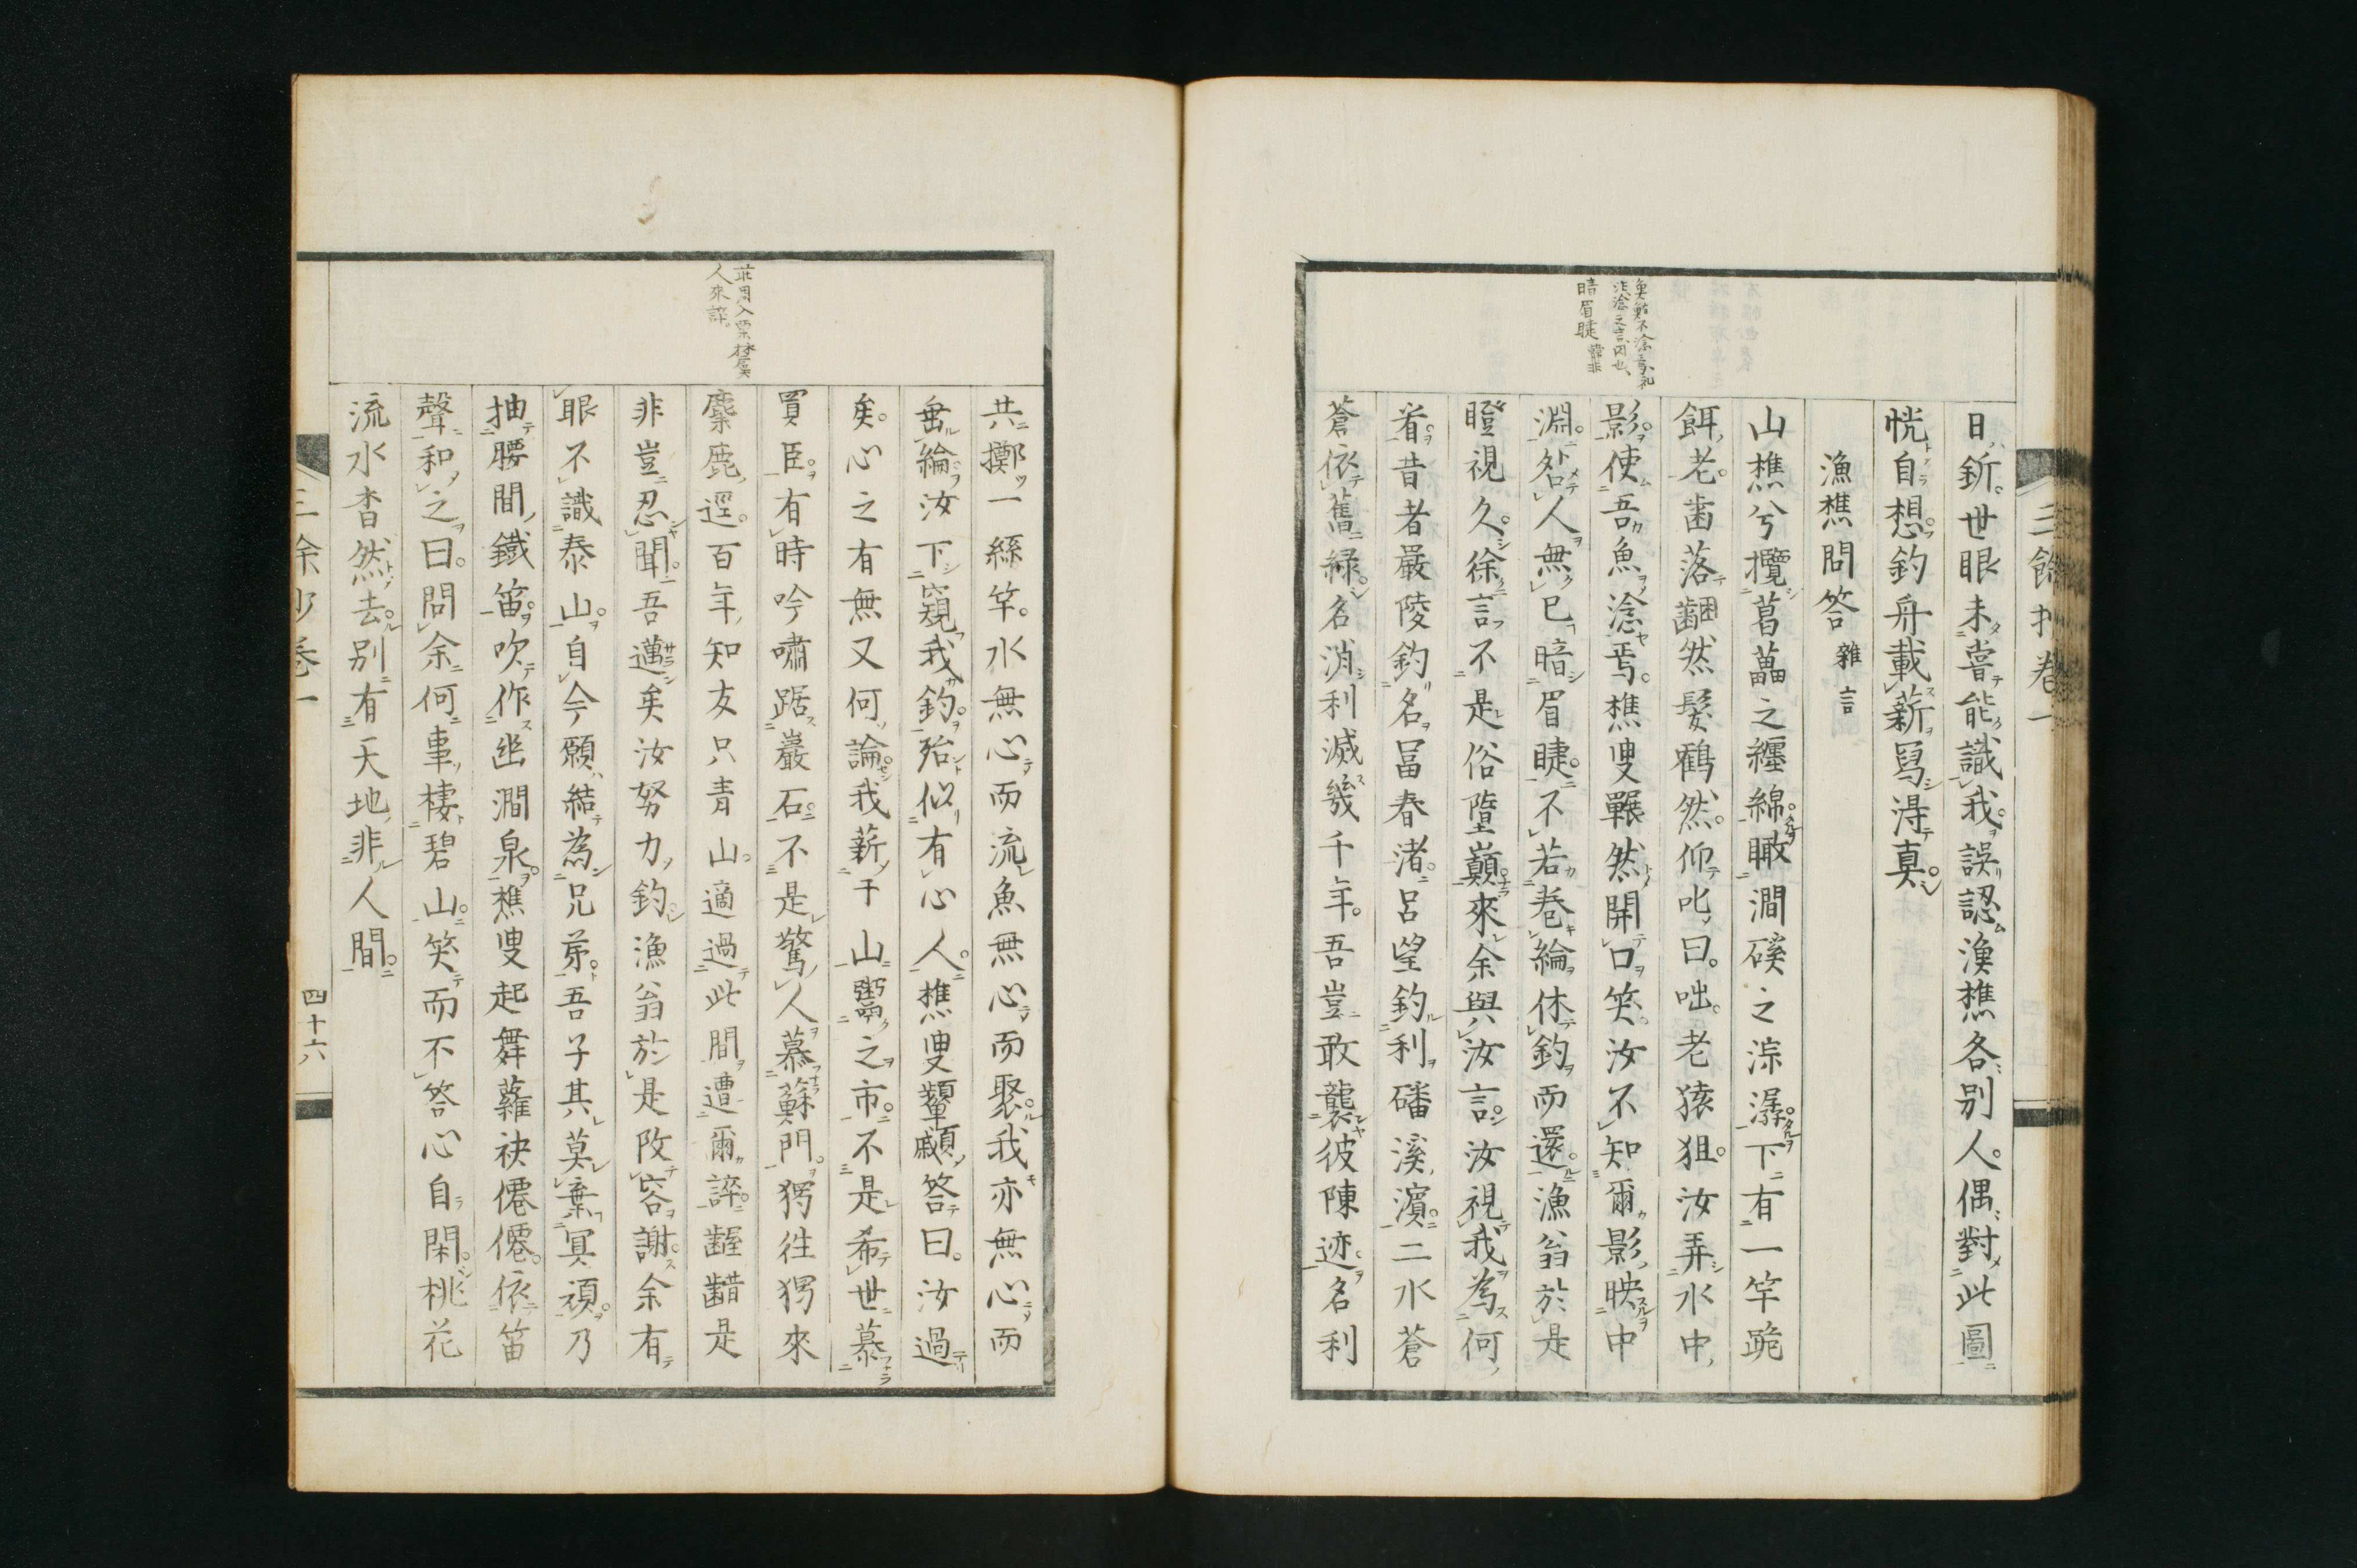 三餘抄卷一
日斨世眼未嘗能識我誤認漁樵各別人偶對此圖
恍自想釣舟載薪寫得真
漁樵問答 雜言
山樵兮攬葛藟之纒綿瞰澗磎之淙潺下有一竿跪
餌老歯落齫然髪鶴然仰叱曰咄老猿狙汝弄水中
影使吾魚淰焉樵叟囅然開口笑汝不知爾影映中
淵咎人無已暗眉睫不若巻綸休釣而還漁翁於是
瞪視久徐言不是俗墮巓來余與汝言汝視我為何
者昔者嚴陵釣名富春渚呂望釣利磻溪濵二水蒼
蒼依舊緑名消利滅幾千年吾豈敢襲彼陳迹名利
暗眉睫 韓非
共擲一絲竿水無心而流魚無心而聚我亦無心而
垂綸汝下窺我釣殆似有心人樵叟顰顣答曰汝過
矣心之有無又何論我薪于山鬻之市不是希世慕
買臣有時吟嘯踞巖石不是驚人慕蘇門猬徃猬來
麋鹿逕百年知友只青山適過此間遭爾誶齷齰是
非豈忍聞吾邁矣汝努力釣漁翁於是改容謝余有
眼不識泰山自今願結為兄弟吾子其莫棄冥頑乃
抽腰間鐵笛吹作幽澗泉樵叟起舞蘿袂僊僊依笛
聲和之曰問余何事棲碧山笑而不答心自閑桃花
流水杳然去別有天地非人間
人來誶
三余抄卷一
四十六